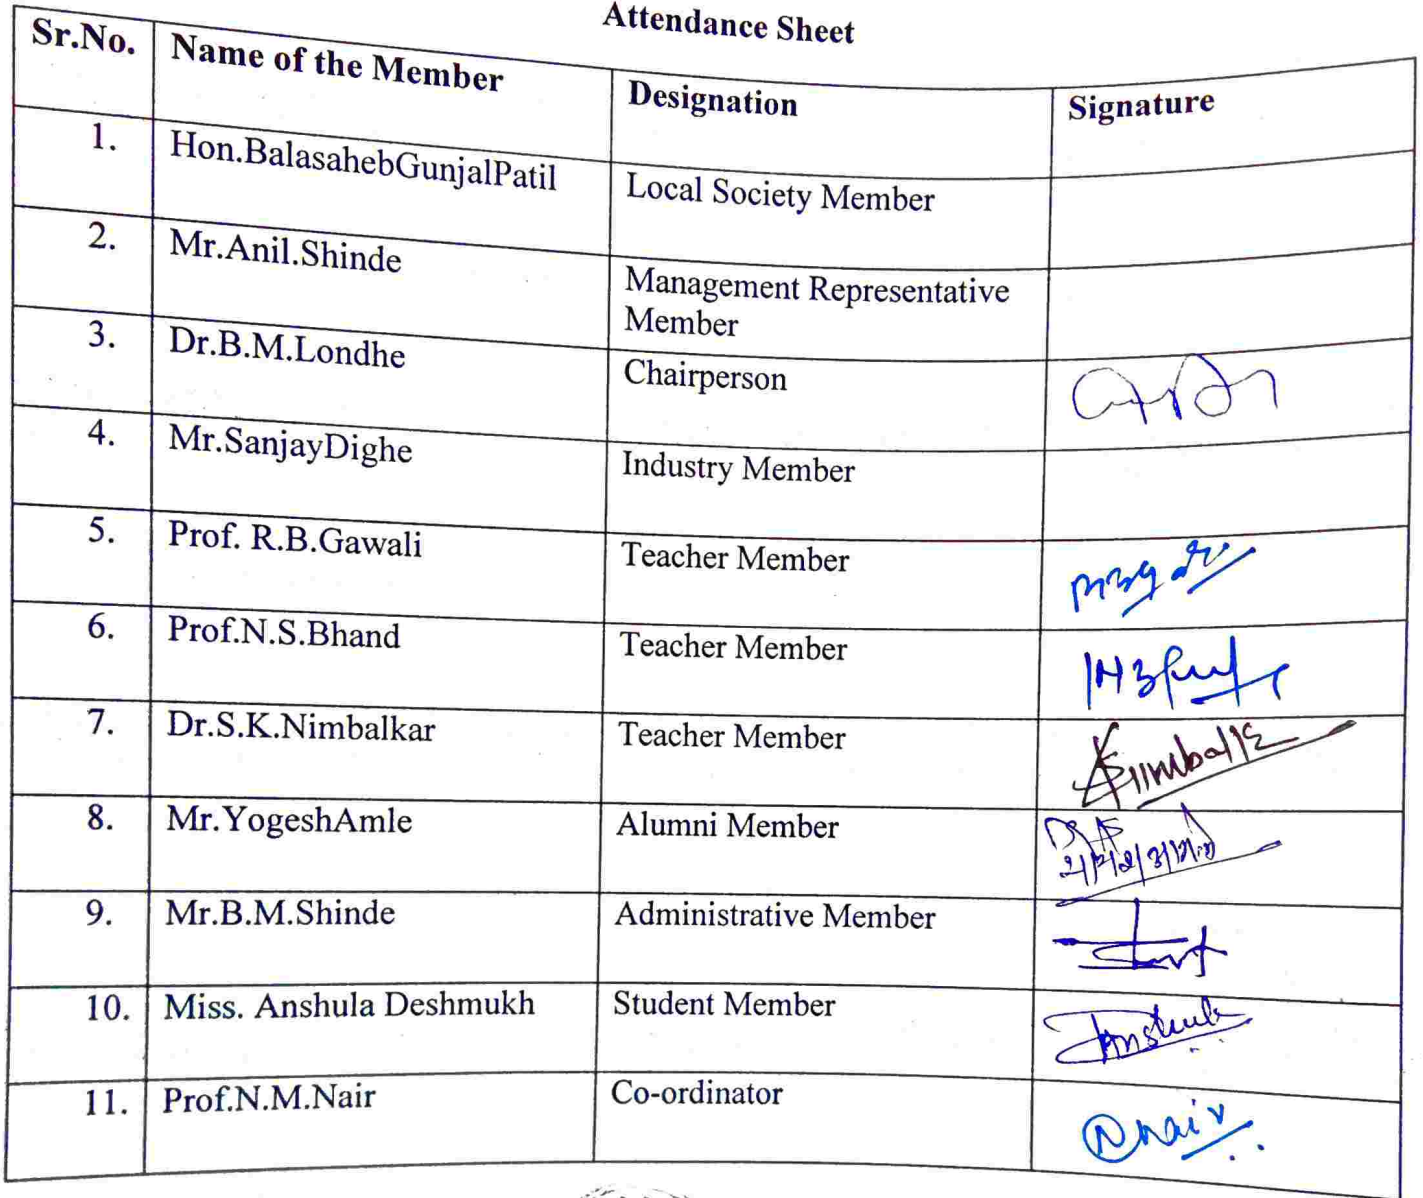 Attendance Sheet
Sr.No. Name of the Member Designation Signature
1. Hon.BalasahebGunjalPatil Local Society Member
2. Mr.Anil.Shinde Management Representative
Member
3. Dr.B.M.Londhe Chairperson
4. Mr.SanjayDighe Industry Member
5. Prof. R.B.Gawali Teacher Member
6. Prof.N.S.Bhand Teacher Member
7. Dr.S.K.Nimbalkar Teacher Member
8. Mr.YogeshAmle Alumni Member
9. Mr.B.M.Shinde Administrative Member
10. Miss. Anshula Deshmukh Student Member Anshula
11. Prof.N.M.Nair Co-ordinator Nnair